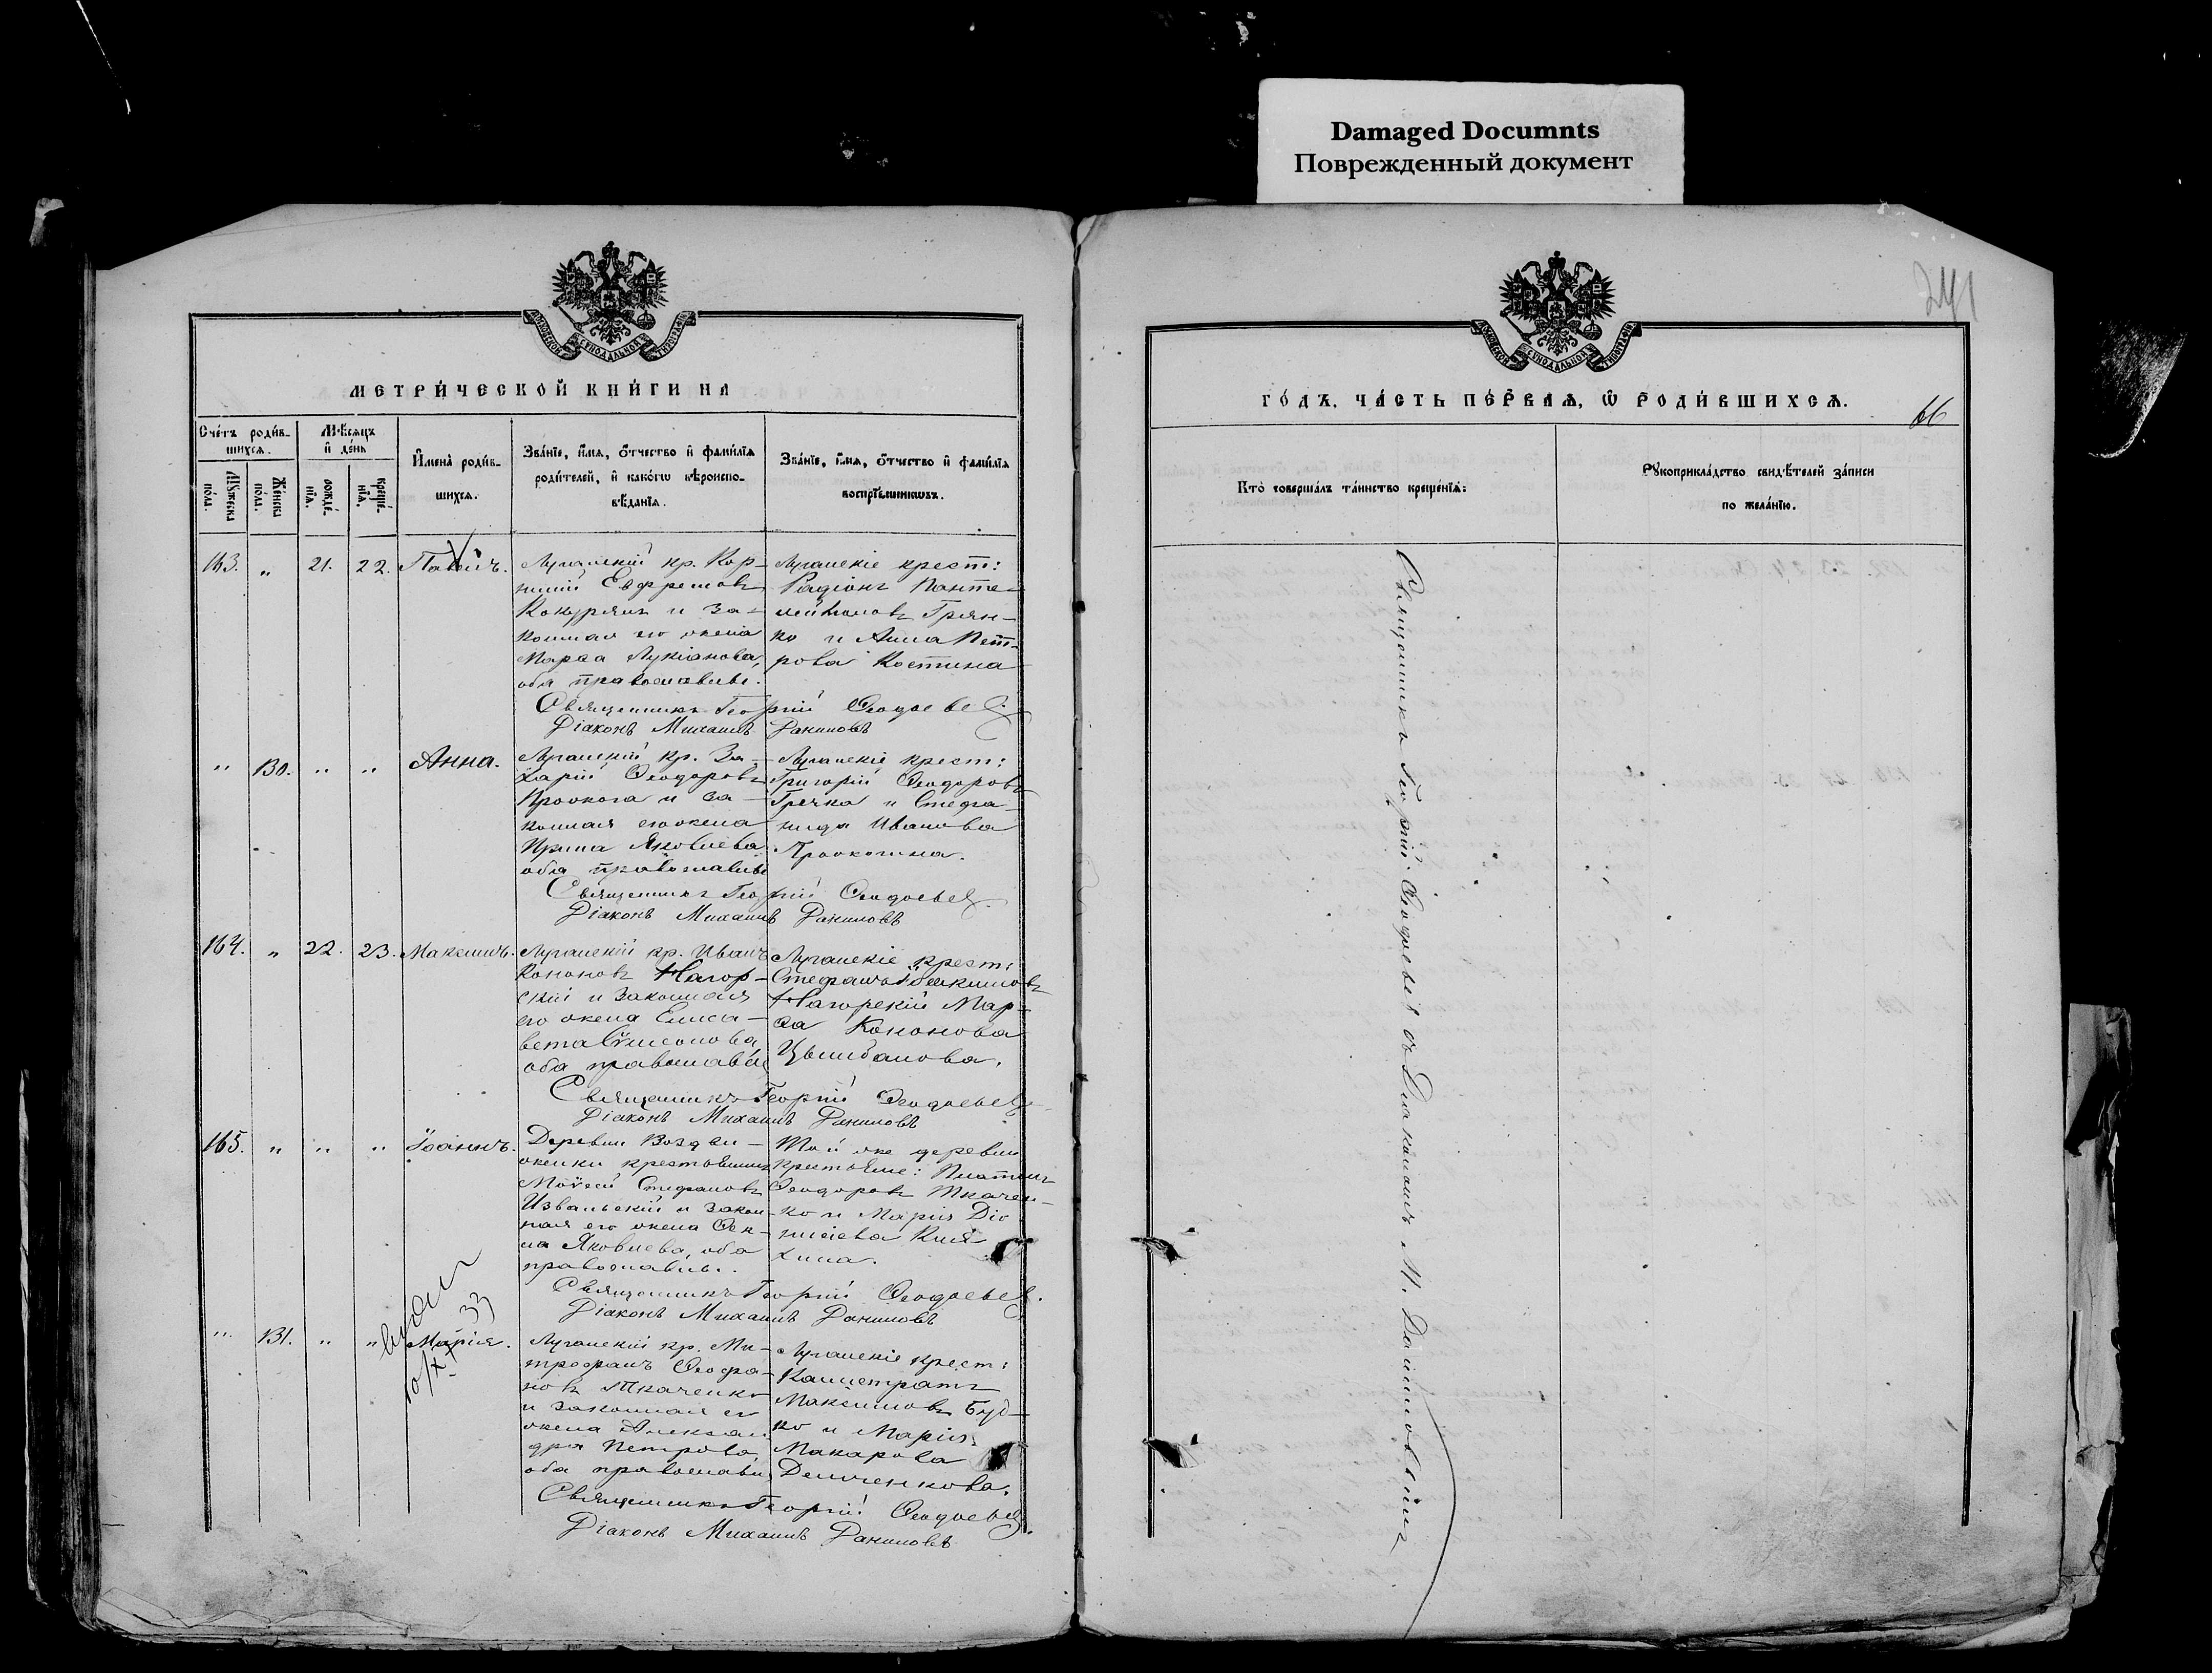 Damaged Documnts
Поврежденный документ
МОСКОВСКОЙ СѴНОДАЛЬНОЙ ТИПОГРАФІИ
МЕТРИ́ЧЕСКОЙ КНИ́ГИ НА
Сче́тъ роди́в-
шихся.
Мѣ́сяцъ
и҆ де́нь
Мꙋ́жеска
по́ла.
Же́нска
по́ла.
рожде́-
нїѧ.
креще́-
нїѧ.
И҆мена̀ роди́в-
шихся.
Зва́нїе, и҆́мѧ, ѻ҆́тчество и҆ фами́лїѧ
роди́телей, и҆ како́гѡ вѣроиспо-
вѣ́данїѧ.
Зва́нїе, и҆́мѧ, ѻ҆́тчество и҆ фами́лїѧ
воспрїе́мникѡвъ.
163. " 21. 22.
Луганскій кр. Кор-
нилій Евфремовъ
Кокурянъ и за-
конная его жена
Марѳа Лукіанова,
оба православные.
Луганскіе крест:
Радіонъ Панте-
леймоновъ Грян-
ко и Анна Пет-
рова Костина
Священникъ Георгій Ѳеодоевъ
Діаконъ Михаилъ Даниловъ
" 130. " " Анна.
Луганскій кр. За-
харій Ѳеодоровъ
и за-
конная его жена
Ирина Яковлева
оба православные
Луганскіе крест:
Григорій Ѳеодоровъ
Гречка и Стефа-
нида Иванова
Священникъ Георгій Ѳеодоевъ
Діаконъ Михаилъ Даниловъ
164. " 22. 23. Максимъ.
Луганскій кр. Иванъ
Кононовъ Нагор-
скій и законная
его жена Елиса-
вета Сѷмеонова,
оба православные
Луганскіе крест:
Стефанъ
Нагорскій Мар-
ѳа Кононова
Цымбалова.
Священникъ Георгій Ѳеодоевъ
Діаконъ Михаилъ Даниловъ
165. " " " Іоаннъ.
Деревни Воздви-
женки крестьянинъ
Моѷсей Стефановъ
Извальскій и закон-
ная его жена Ѳек-
ла Яковлева, оба
православные.
Той же деревни
крестьяне: Платонъ
Ѳеодоровъ Ткачен-
ко и Марія Діо-
нисіева
Священникъ Георгій Ѳеодоевъ.
Діаконъ Михаилъ Даниловъ
33
" 131. " " Марія.
Луганскій кр. Ми-
трофанъ Ѳеофа-
новъ Ткаченко
и законная ег
жена Алексан-
дра Петрова
оба православн
Луганскіе крест:
Каллистратъ
Максимовъ Буд-
ко и Марія
Макарова
Демченкова.
Священникъ Георгій Ѳеодоевъ.
Діаконъ Михаилъ Даниловъ
241
МОСКОВСКОЙ СѴНОДАЛЬНОЙ ТИПОГРАФІИ
ГО́ДЪ, ЧА́СТЬ ПЕ́РВАѦ, Ѡ҆ РОДИ́ВШИХСѦ.
66
Кто̀ соверша́лъ та́инство креще́нїѧ:
Рꙋкоприкла́дство свидѣ́телей за́писи
по жела́нїю.
Священникъ Георгій Ѳеодоевъ съ Діакономъ М. Даниловымъ